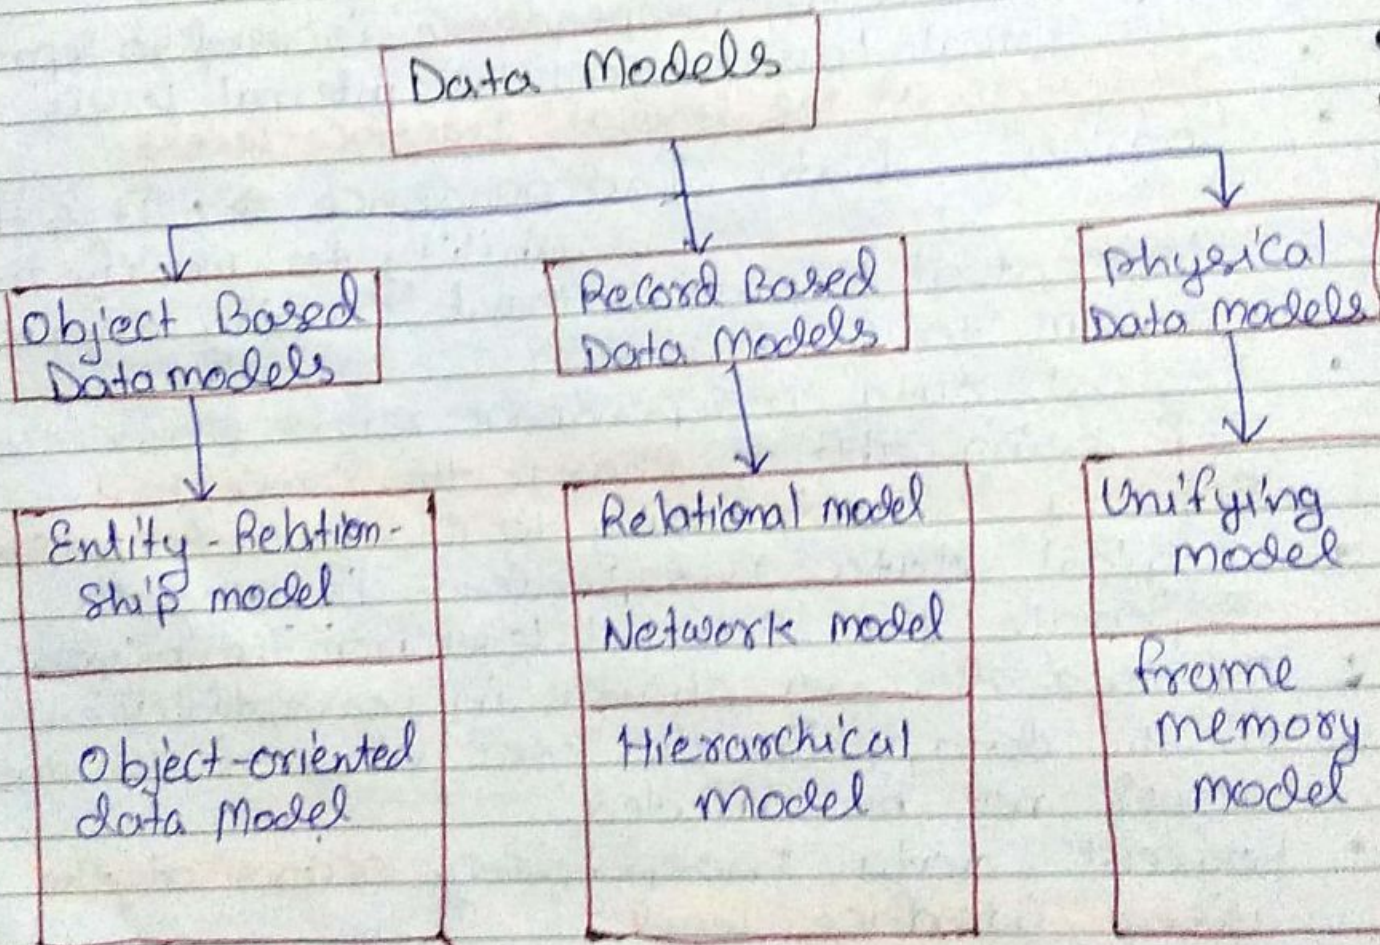 Data Models
Object Based
Data models
Record Based
Data Models
Physical
Data Models
Entity-Relation-
Ship model
Object-oriented
data Model
Relational model
Network model
Hierarchical
Model
Unifying
Model
frame
memory
model